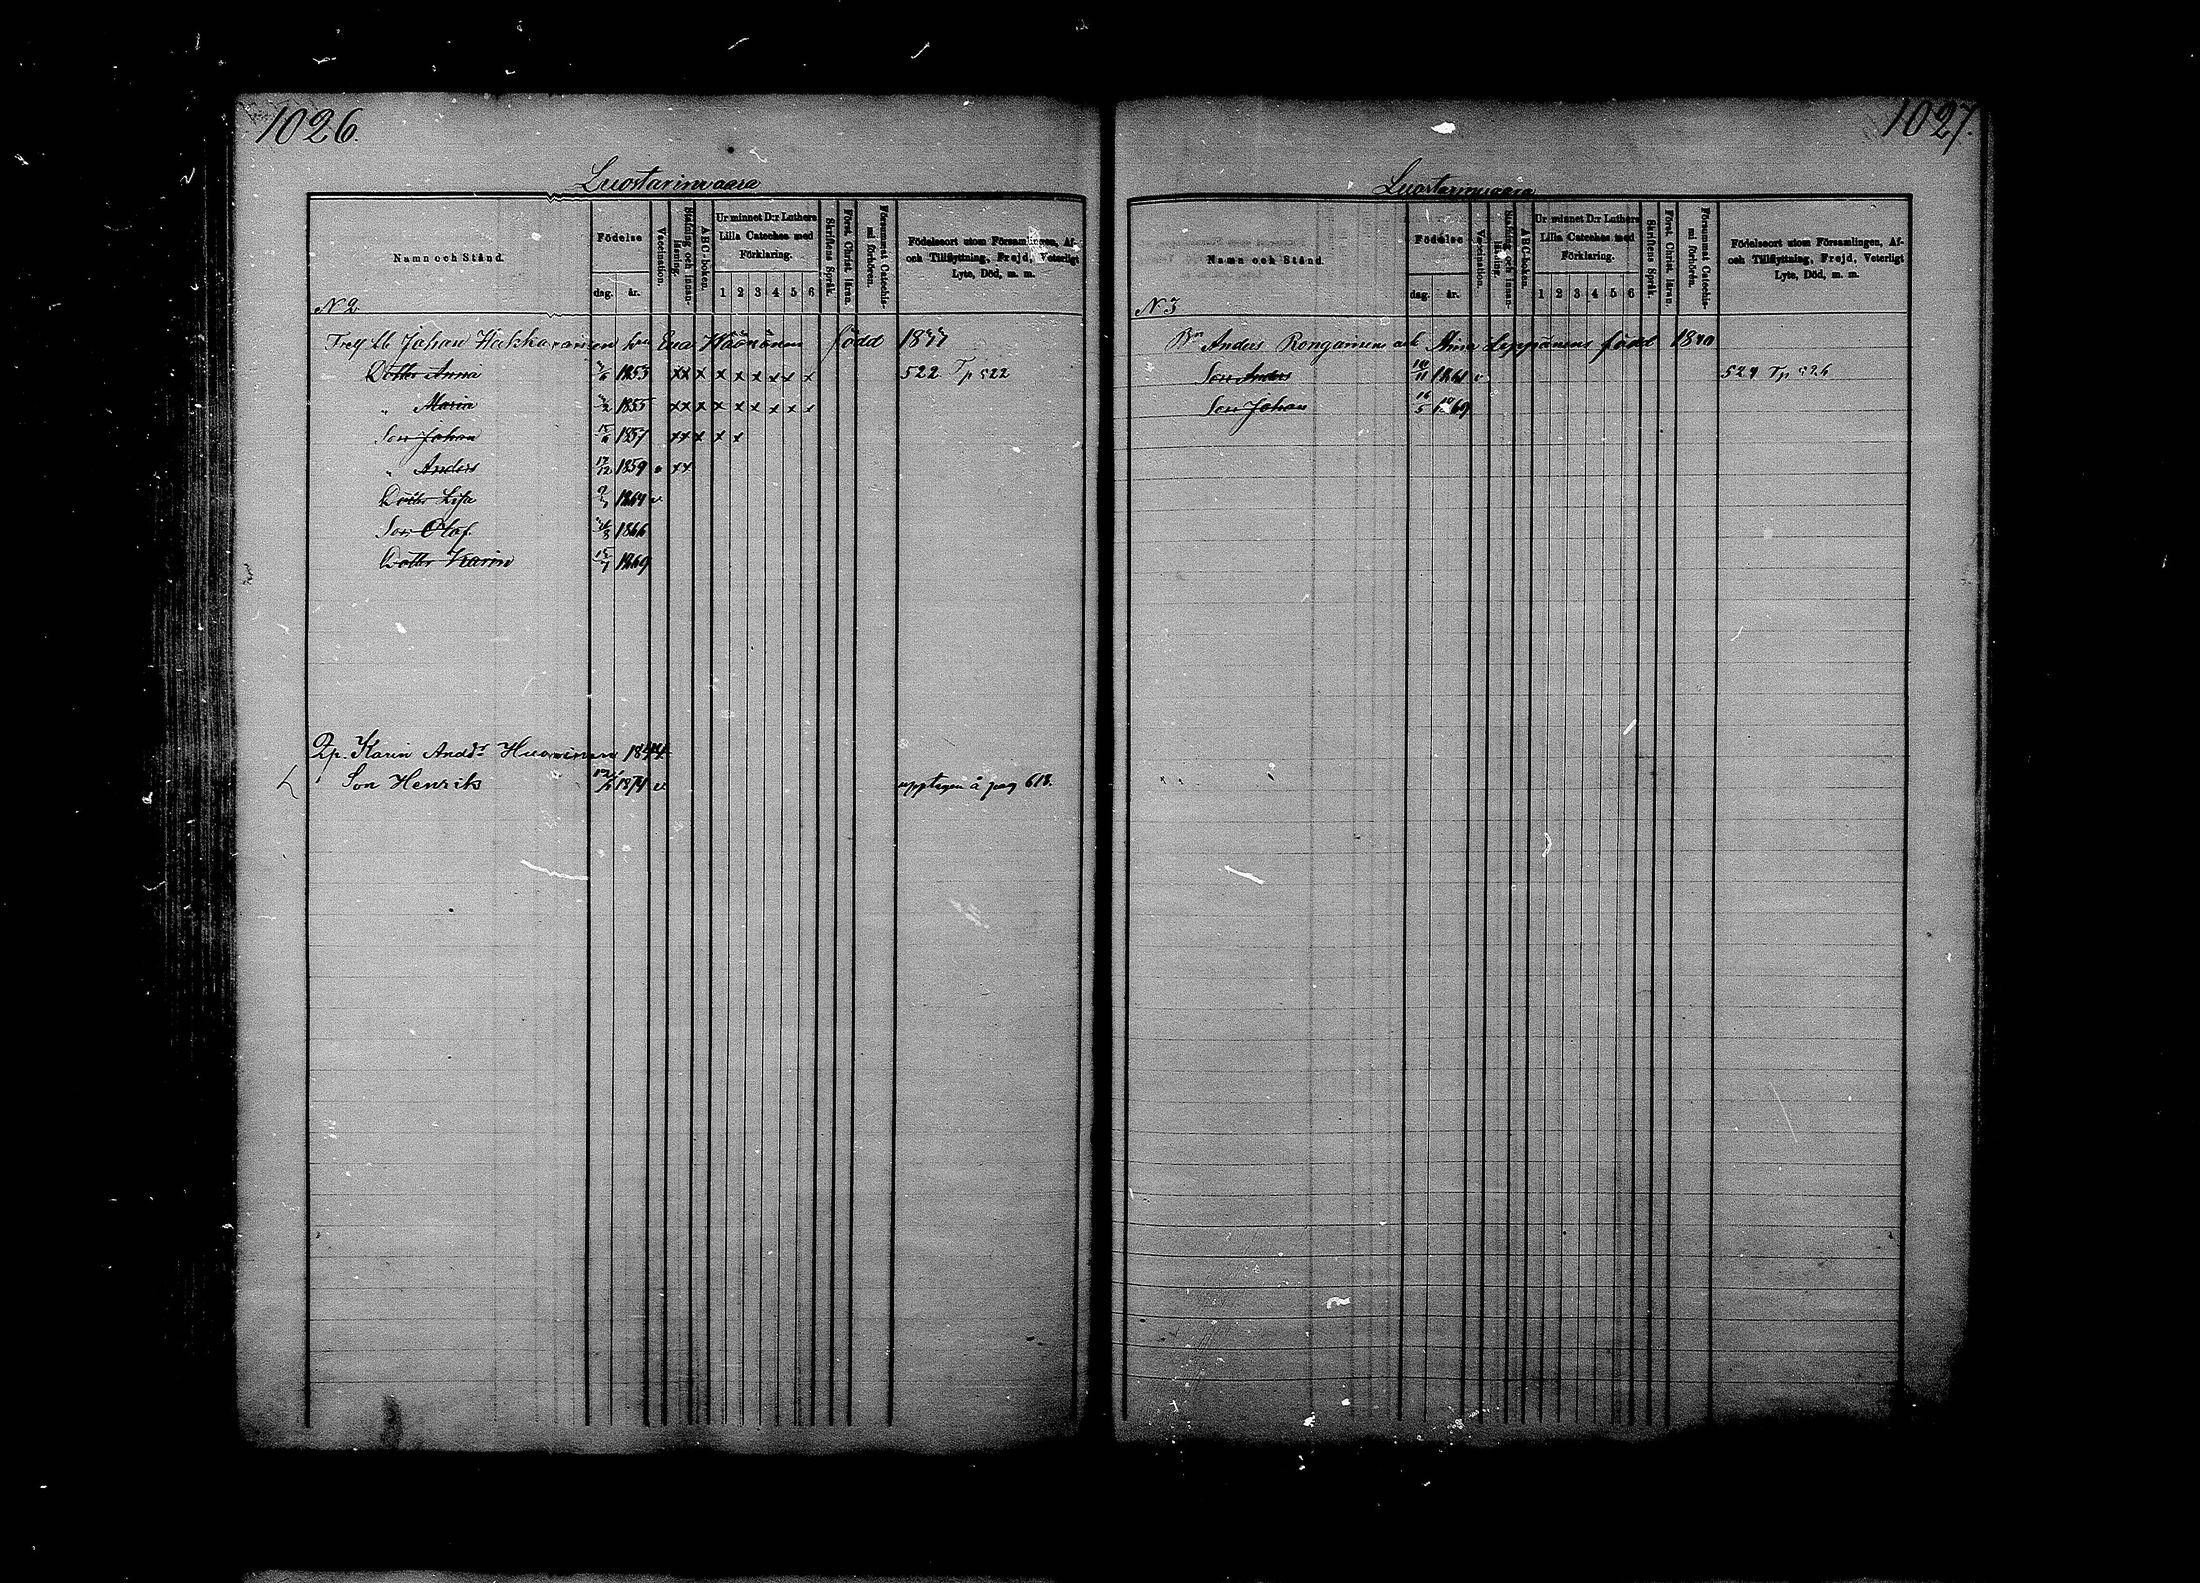 1026.
Luostarinvaara
Namn och Stånd.
Födelse
dag. år.
Vaccination.
Stafning och Innanläsning.
ABC-boken.
Ur minnet D:r Luthers Lilla Cateches med Förklaring.
1 2 3 4 5 6
Skriftens Språk.
Först. Christ. läran.
Försummat Catechismi förhören.
Födelseort utom Församlingen, Af- och Tillflyttning, Frejd, Veterligt Lyte, Död, m. m.
N 2
Johan Eva född
Dotter Anna 1853 xx x x x x x x x 522 Tp 522
" Maria 1855 xx x x x x x x x
Son Johan 1857 xx x x x
" Anders 17/12 1859 v xx
Dotter Lisa 1864 v
Son Olaf 1866
Dotter Karin 15/7 1869
Karin Andd:r 1844
Son Henrik 1874 v upptagen å pag 618.
1027.
Luostarinvaara
Namn och Stånd.
Födelse
dag. år.
Vaccination.
Stafning och Innanläsning.
ABC-boken.
Ur minnet D:r Luthers Lilla Cateches med Förklaring.
1 2 3 4 5 6
Skriftens Språk.
Först. Christ. läran.
Försummat Catechismi förhören.
Födelseort utom Församlingen, Af- och Tillflyttning, Frejd, Veterligt Lyte, Död, m. m.
N 3
Anders Rongainens och Leppänens född 1840
Son Anders 1861 v 524 Tp 526
Son Johan 16/5 1869